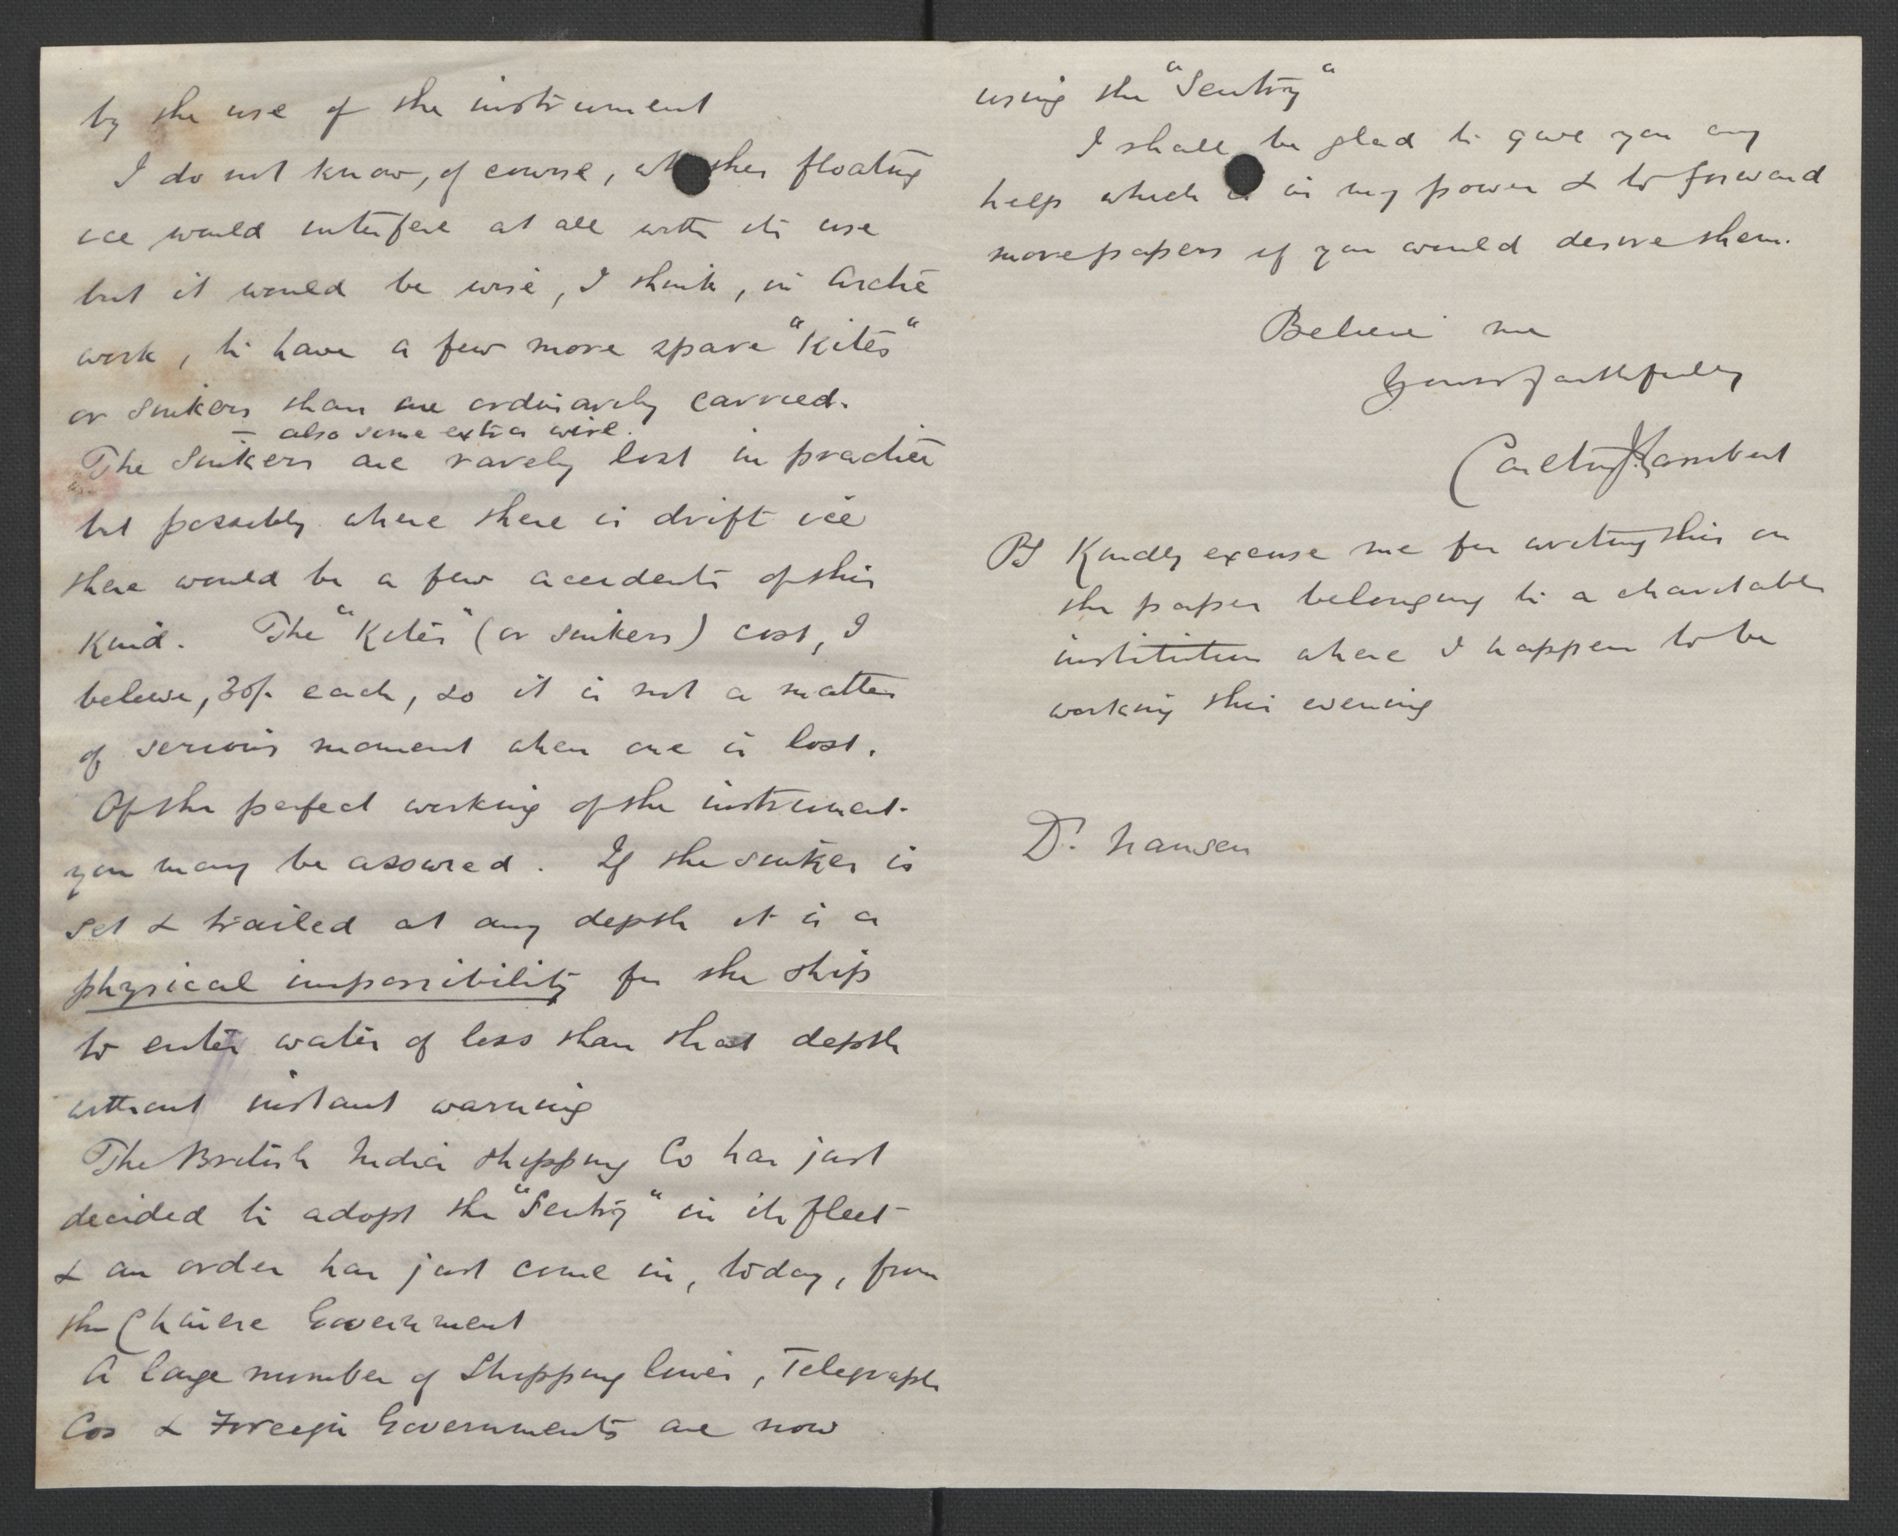 by the use of the instrument
I do not know, of course, whether floating
ice would interfere at all with its use
but it would be wise, I think, in Arctic
work, to have a few more spare "Kites"
or sinkers than are ordinarily carried.
– also some extra wire.
The sinkers are rarely lost in practice
but possibly where there is drift ice
there would be a few accidents of this
kind. The "Kites" (or sinkers) cost, I
believe, 30/- each, so it is not a matter
of serious moment when one is lost.
Of the perfect working of the instrument
you may be assured. If the sinker is
set & trailed at any depth it is a
physical impossibility for the ship
to enter water of less than that depth
without instant warning
The British India Shipping Co has just
decided to adopt the "Sentry" in its fleet
& an order has just come in, today, from
the Chinese Government
A large number of Shipping lines, Telegraph
Cos & Foreign Governments are now
using the "Sentry"
I shall be glad to give you any
help which is in my power & to forward
more papers if you would desire them.
Believe me
Yours faithfully
Carlton J. Lambert
PS Kindly excuse me for writing this on
the paper belonging to a charitable
institution where I happen to be
working this evening
Dr. Nansen